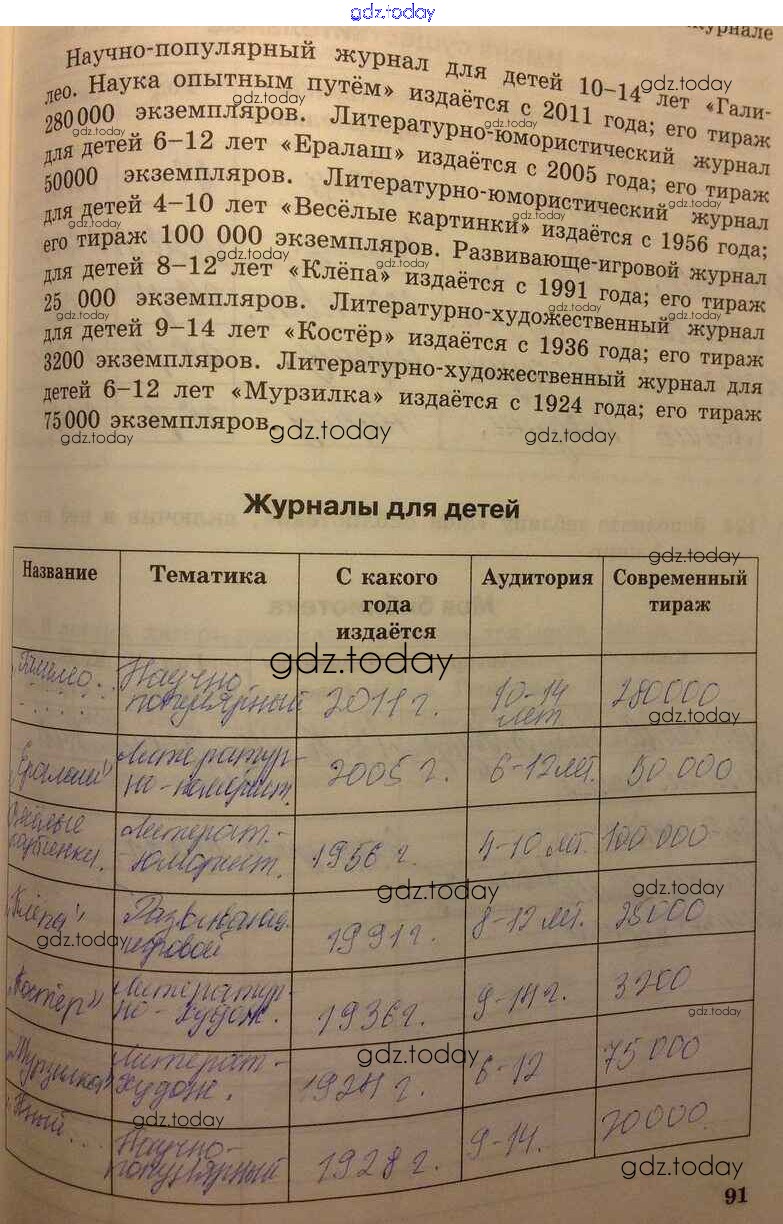 gdz.today
журнале
Научно-популярный журнал для детей 10–14 лет «Гали-
лео. Наука опытным путём» издаётся с 2011 года; его тираж
280000 экземпляров. Литературно-юмористический журнал
для детей 6–12 лет «Ералаш» издаётся с 2005 года; его тираж
50000 экземпляров. Литературно-юмористический журнал
для детей 4–10 лет «Весёлые картинки» издаётся с 1956 года;
его тираж 100 000 экземпляров. Развивающе-игровой журнал
для детей 8–12 лет «Клёпа» издаётся с 1991 года; его тираж
25 000 экземпляров. Литературно-художественный журнал
для детей 9–14 лет «Костёр» издаётся с 1936 года; его тираж
3200 экземпляров. Литературно-художественный журнал для
детей 6–12 лет «Мурзилка» издаётся с 1924 года; его тираж
75000 экземпляров.
gdz.today
Журналы для детей
Название Тематика С какого года издаётся Аудитория Современный тираж
„Галилео... Научно-популярный 2011 г. 10-14 лет 280000
„Ералаш" Литератур-но-юморист. 2005 г. 6-12 лет. 50 000
Весёлые картинки. Литерат.-юморист. 1956 г. 4-10 лет. 100 000
„Клёпа" Развивающ. игровой 1991 г. 8-12 лет. 25000
„Костёр" Литератур-но-худож. 1936 г. 9-14 г. 3200
„Мурзилка" Литерат-худож. 1924 г. 6-12 75 000
„Юный... Научно-популярный 1928 г. 9-14. 20000.
gdz.today
91